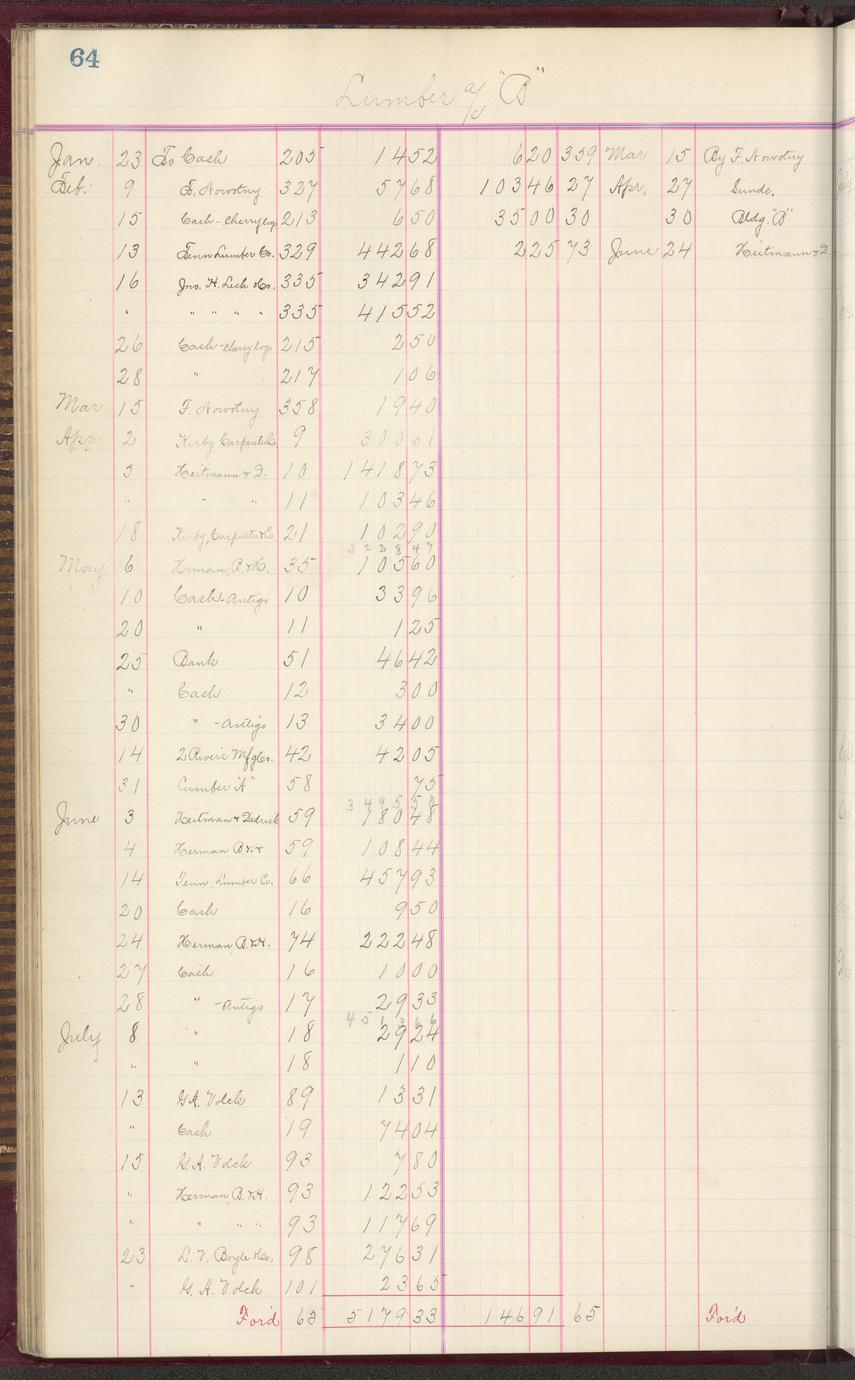 64
Lumber a/c "B"
Jan. 23 To Cash 205 14 52 6 20 359 Mar 15 By F. Novotny
Feb. 9 F. Novotny 327 57 68 103 46 27 Apr. 27 Sunds.
15 Cash - Cherry logs 213 6 50 35 00 30 30 Bldg. "B"
13 Tenn Lumber Co. 329 442 68 2 25 73 June 24 Heitmann & D.
16 Jno. H. Lesh & Co. 335 342 91
" " " " " 335 415 52
26 Cash - Cherry logs 215 2 50
28 " 217 1 06
Mar 15 F. Novotny 358 19 40
Apr 2 Kirby Carpenter Co. 9 300 61
5 Heitmann & D. 10 1418 73
" " " 11 103 46
18 Kirby, Carpenter Co 21 102 90
3228 47
May 6 Herman, B. & H. 35 105 60
10 Cash - Antigo 10 33 96
20 " 11 1 25
25 Bank 51 46 42
" Cash 12 3 00
30 " - Antigo 13 34 00
14 2 Rivers Mfg Co. 42 42 05
31 Lumber "A" 58 75
3495 50
June 3 Heitman & Dedrick 59 180 48
4 Herman B. & H 59 108 44
14 Tenn. Lumber Co. 66 457 93
20 Cash 16 9 50
24 Herman, B. & H. 74 222 48
27 Cash 16 10 00
28 " - Antigo 17 29 33
4513 66
July 8 " 18 29 24
" " 18 1 10
13 G. A. Volck 89 13 31
" Cash 19 74 04
15 G. A. Volck 93 7 80
" Herman, B. & H. 93 122 53
" " " " 93 117 69
23 L. V. Boyle & Co. 98 276 31
" G. A. Volck 101 23 65
For'd 65 5179 33 146 91 65 For'd